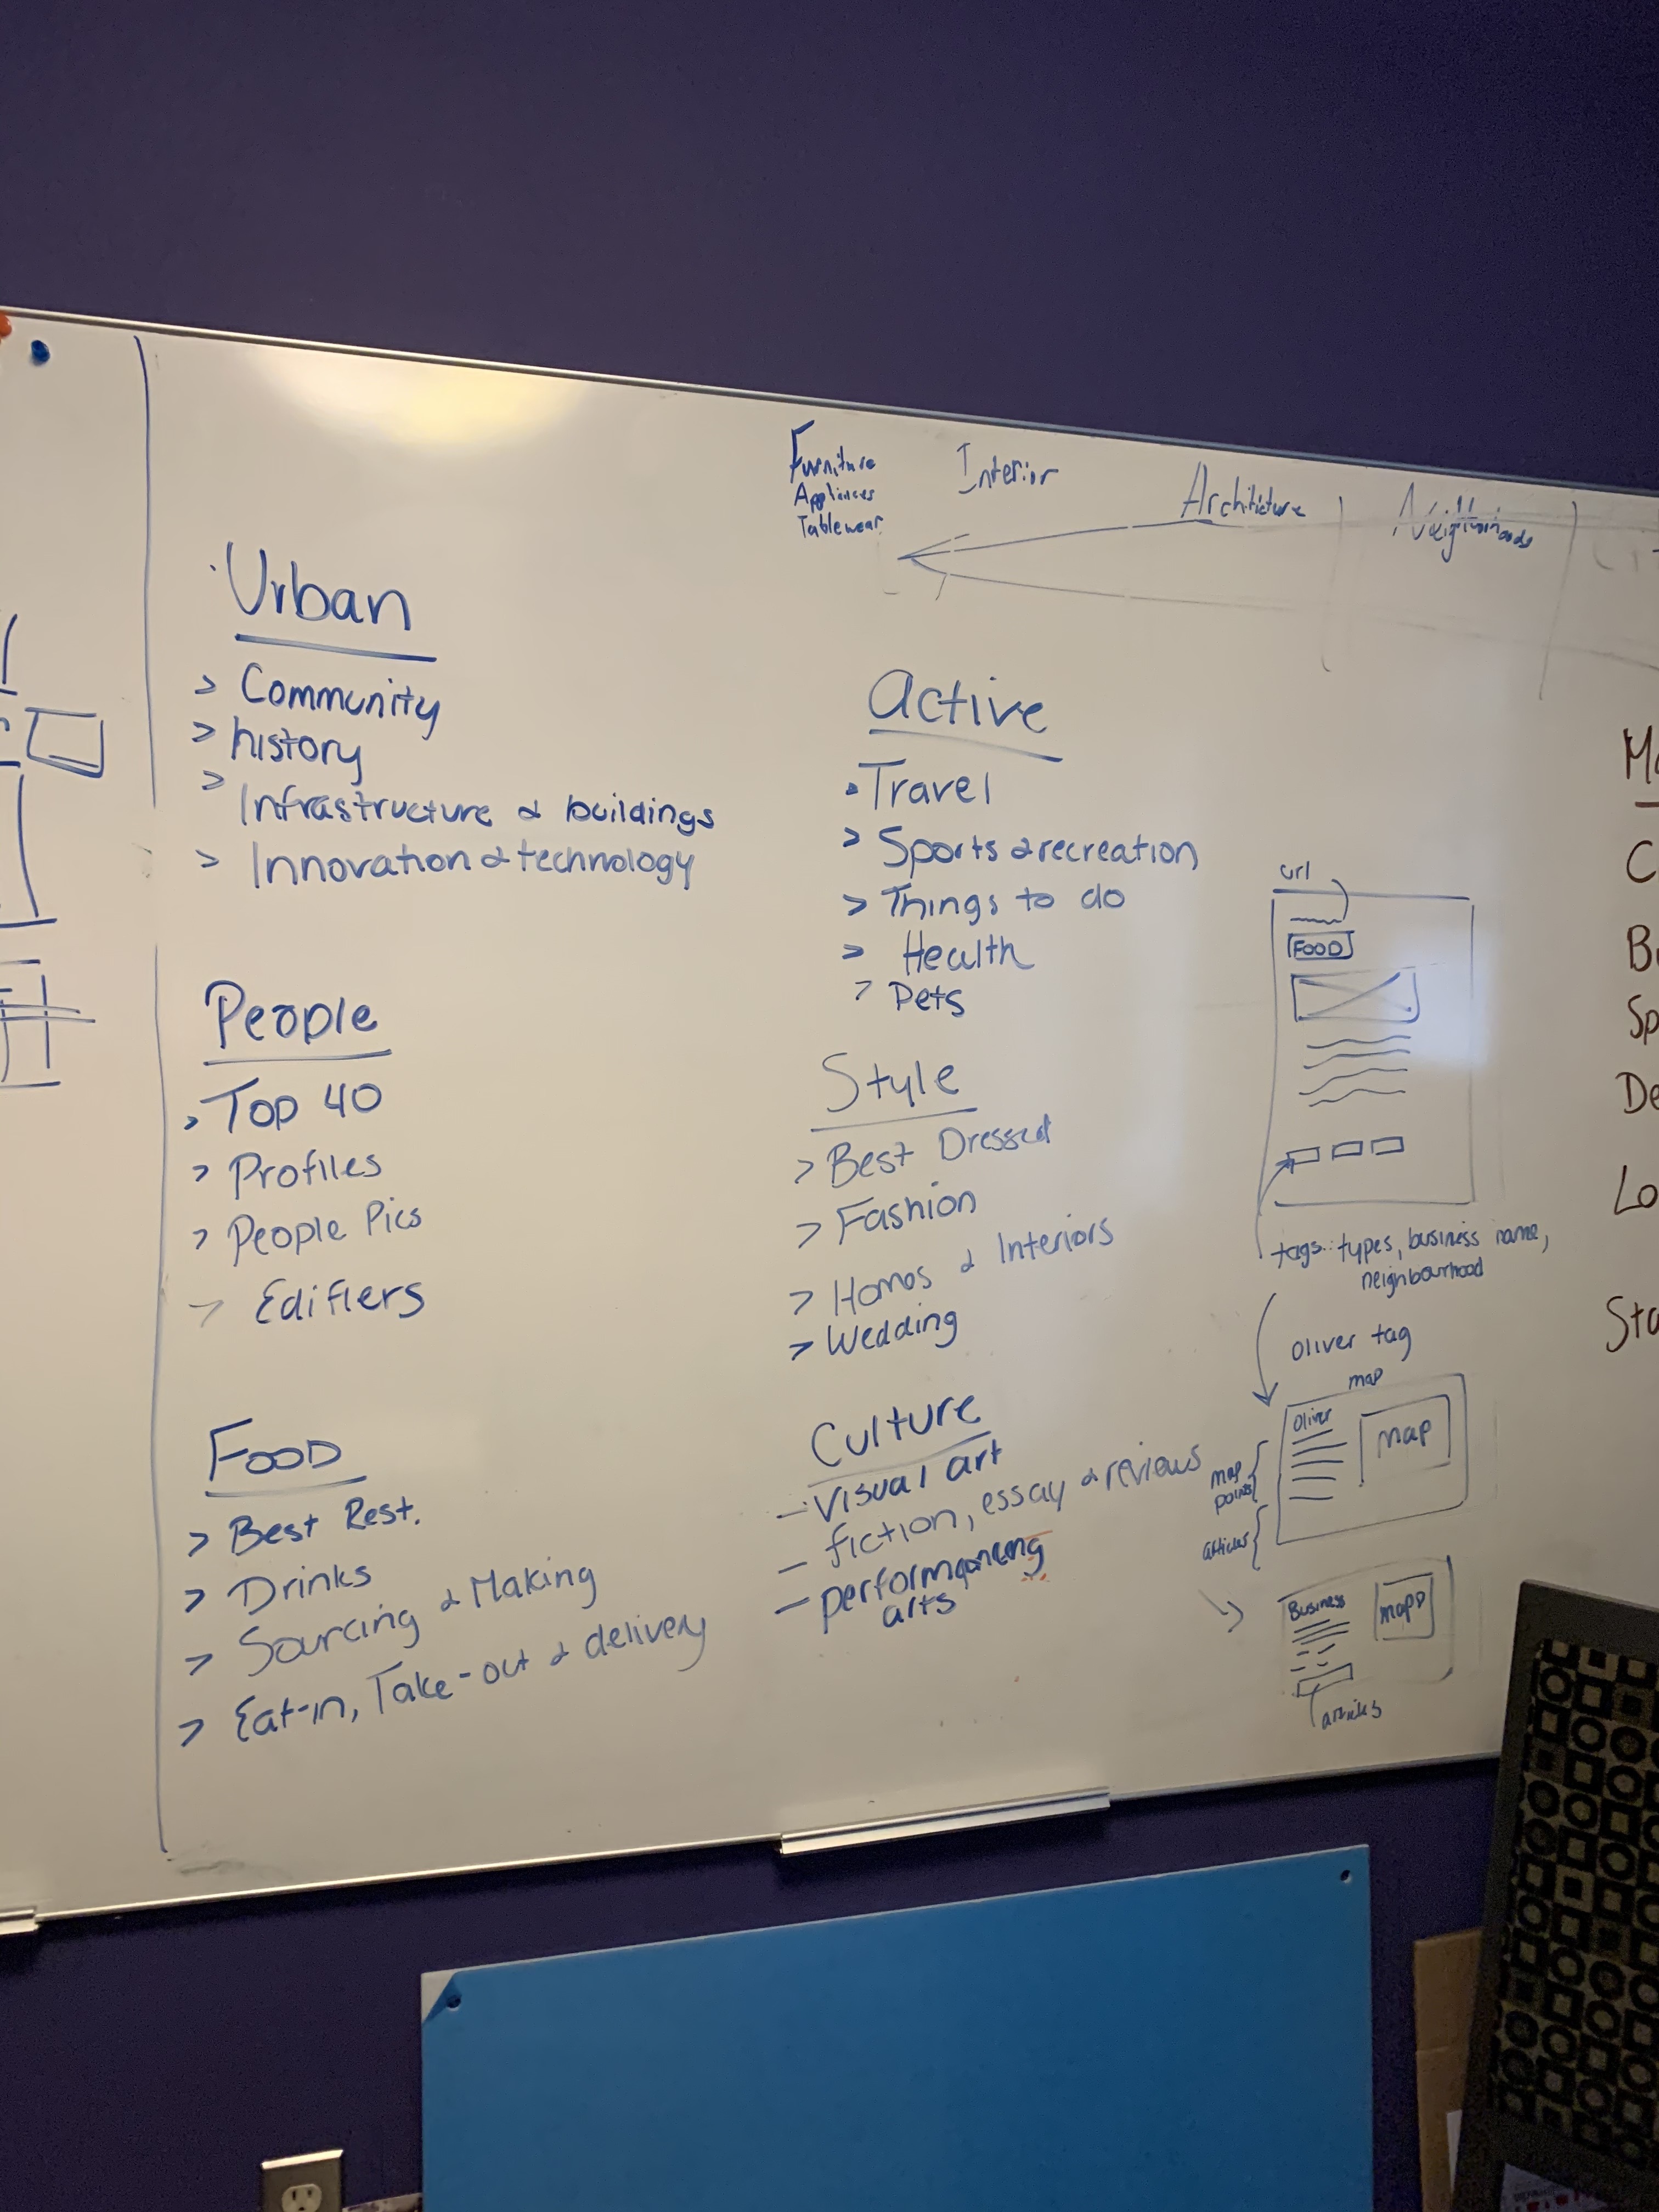 Furniture
Appliances
Tablewear
Interior
Architecture
Neighbourhoods
Urban
> Community
> history
> Infrastructure & buildings
> Innovation & technology
People
> Top 40
> Profiles
> People Pics
> Edifiers
Food
> Best Rest.
> Drinks
> Sourcing & Making
> Eat-in, Take-out & delivery
Active
> Travel
> Sports & recreation
> Things to do
> Health
> Pets
Style
> Best Dressed
> Fashion
> Homes & Interiors
> Wedding
Culture
- Visual art
- fiction, essay & reviews
- performing
arts
url
FOOD
tags: types, business name,
neighbourhood
Oliver tag
map
Oliver
map
map
points
articles
Business
map
articles